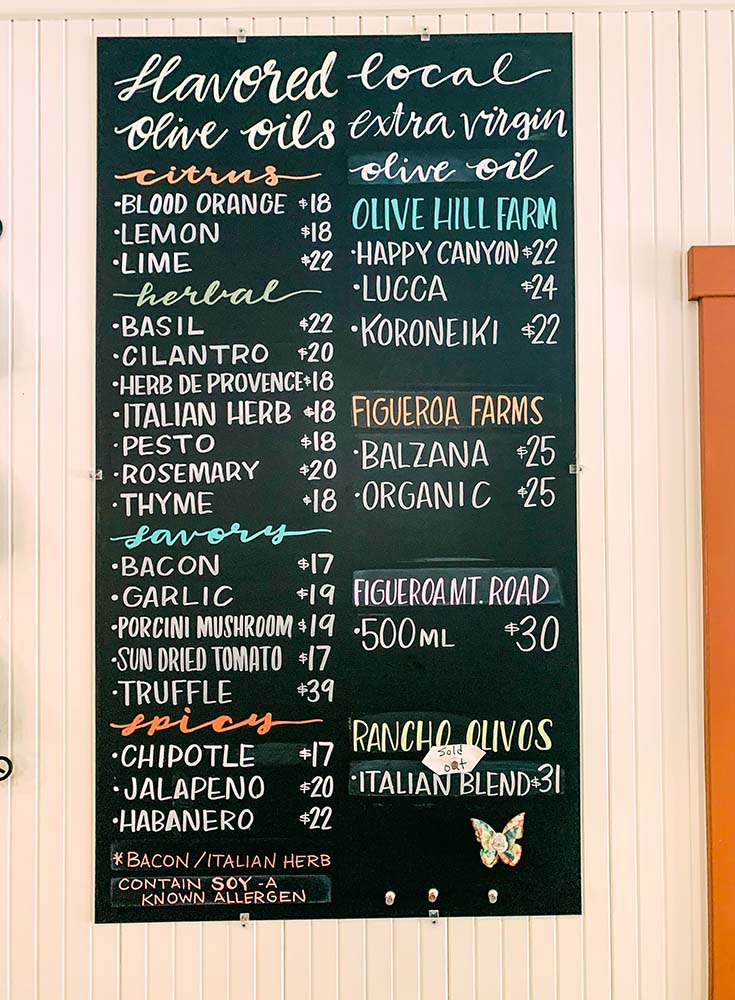 flavored
olive oils
citrus
•BLOOD ORANGE $18
•LEMON $18
•LIME $22
herbal
•BASIL $22
•CILANTRO $20
•HERB DE PROVENCE $18
•ITALIAN HERB $18
•PESTO $18
•ROSEMARY $20
•THYME $18
savory
•BACON $17
•GARLIC $19
•PORCINI MUSHROOM $19
•SUN DRIED TOMATO $17
•TRUFFLE $39
spicy
•CHIPOTLE $17
•JALAPENO $20
•HABANERO $22
*BACON/ITALIAN HERB
CONTAIN SOY - A
KNOWN ALLERGEN
local
extra virgin
olive oil
OLIVE HILL FARM
•HAPPY CANYON $22
•LUCCA $24
•KORONEIKI $22
FIGUEROA FARMS
•BALZANA $25
•ORGANIC $25
FIGUEROA MT. ROAD
•500ML $30
RANCHO OLIVOS
Sold
out
•ITALIAN BLEND $31